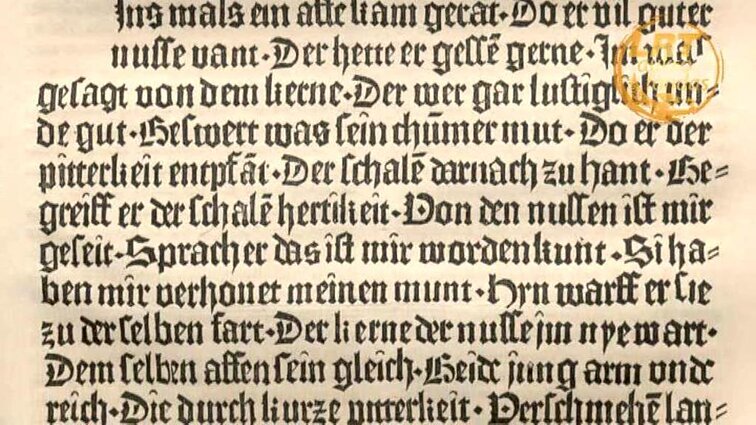 Ins mals ein affe kam gerāt·Do er vil guter
nusse vant·Der hette er gessē gerne·Im was
gesagt von dem kerne·Der wer gar lustiglich un-
de gut·Beswert was sein thūmer mut·Do er der
pitterkeit entpfāt·Der schalē darnach zu hant·Be-
greiff er der schalē hertikeit·Von den nussen ist mir
geseit·Sprach er das ist mir worden kunt·Si ha-
ben mir verhonet meinen munt·Hyn warff er sie
zu der selben fart·Der kerne der nusse im nye wart·
Dem selben affen sein gleich·Beide jung arm vnde
reich·Die durch kurze pitterkeit·Verschmehē lan-